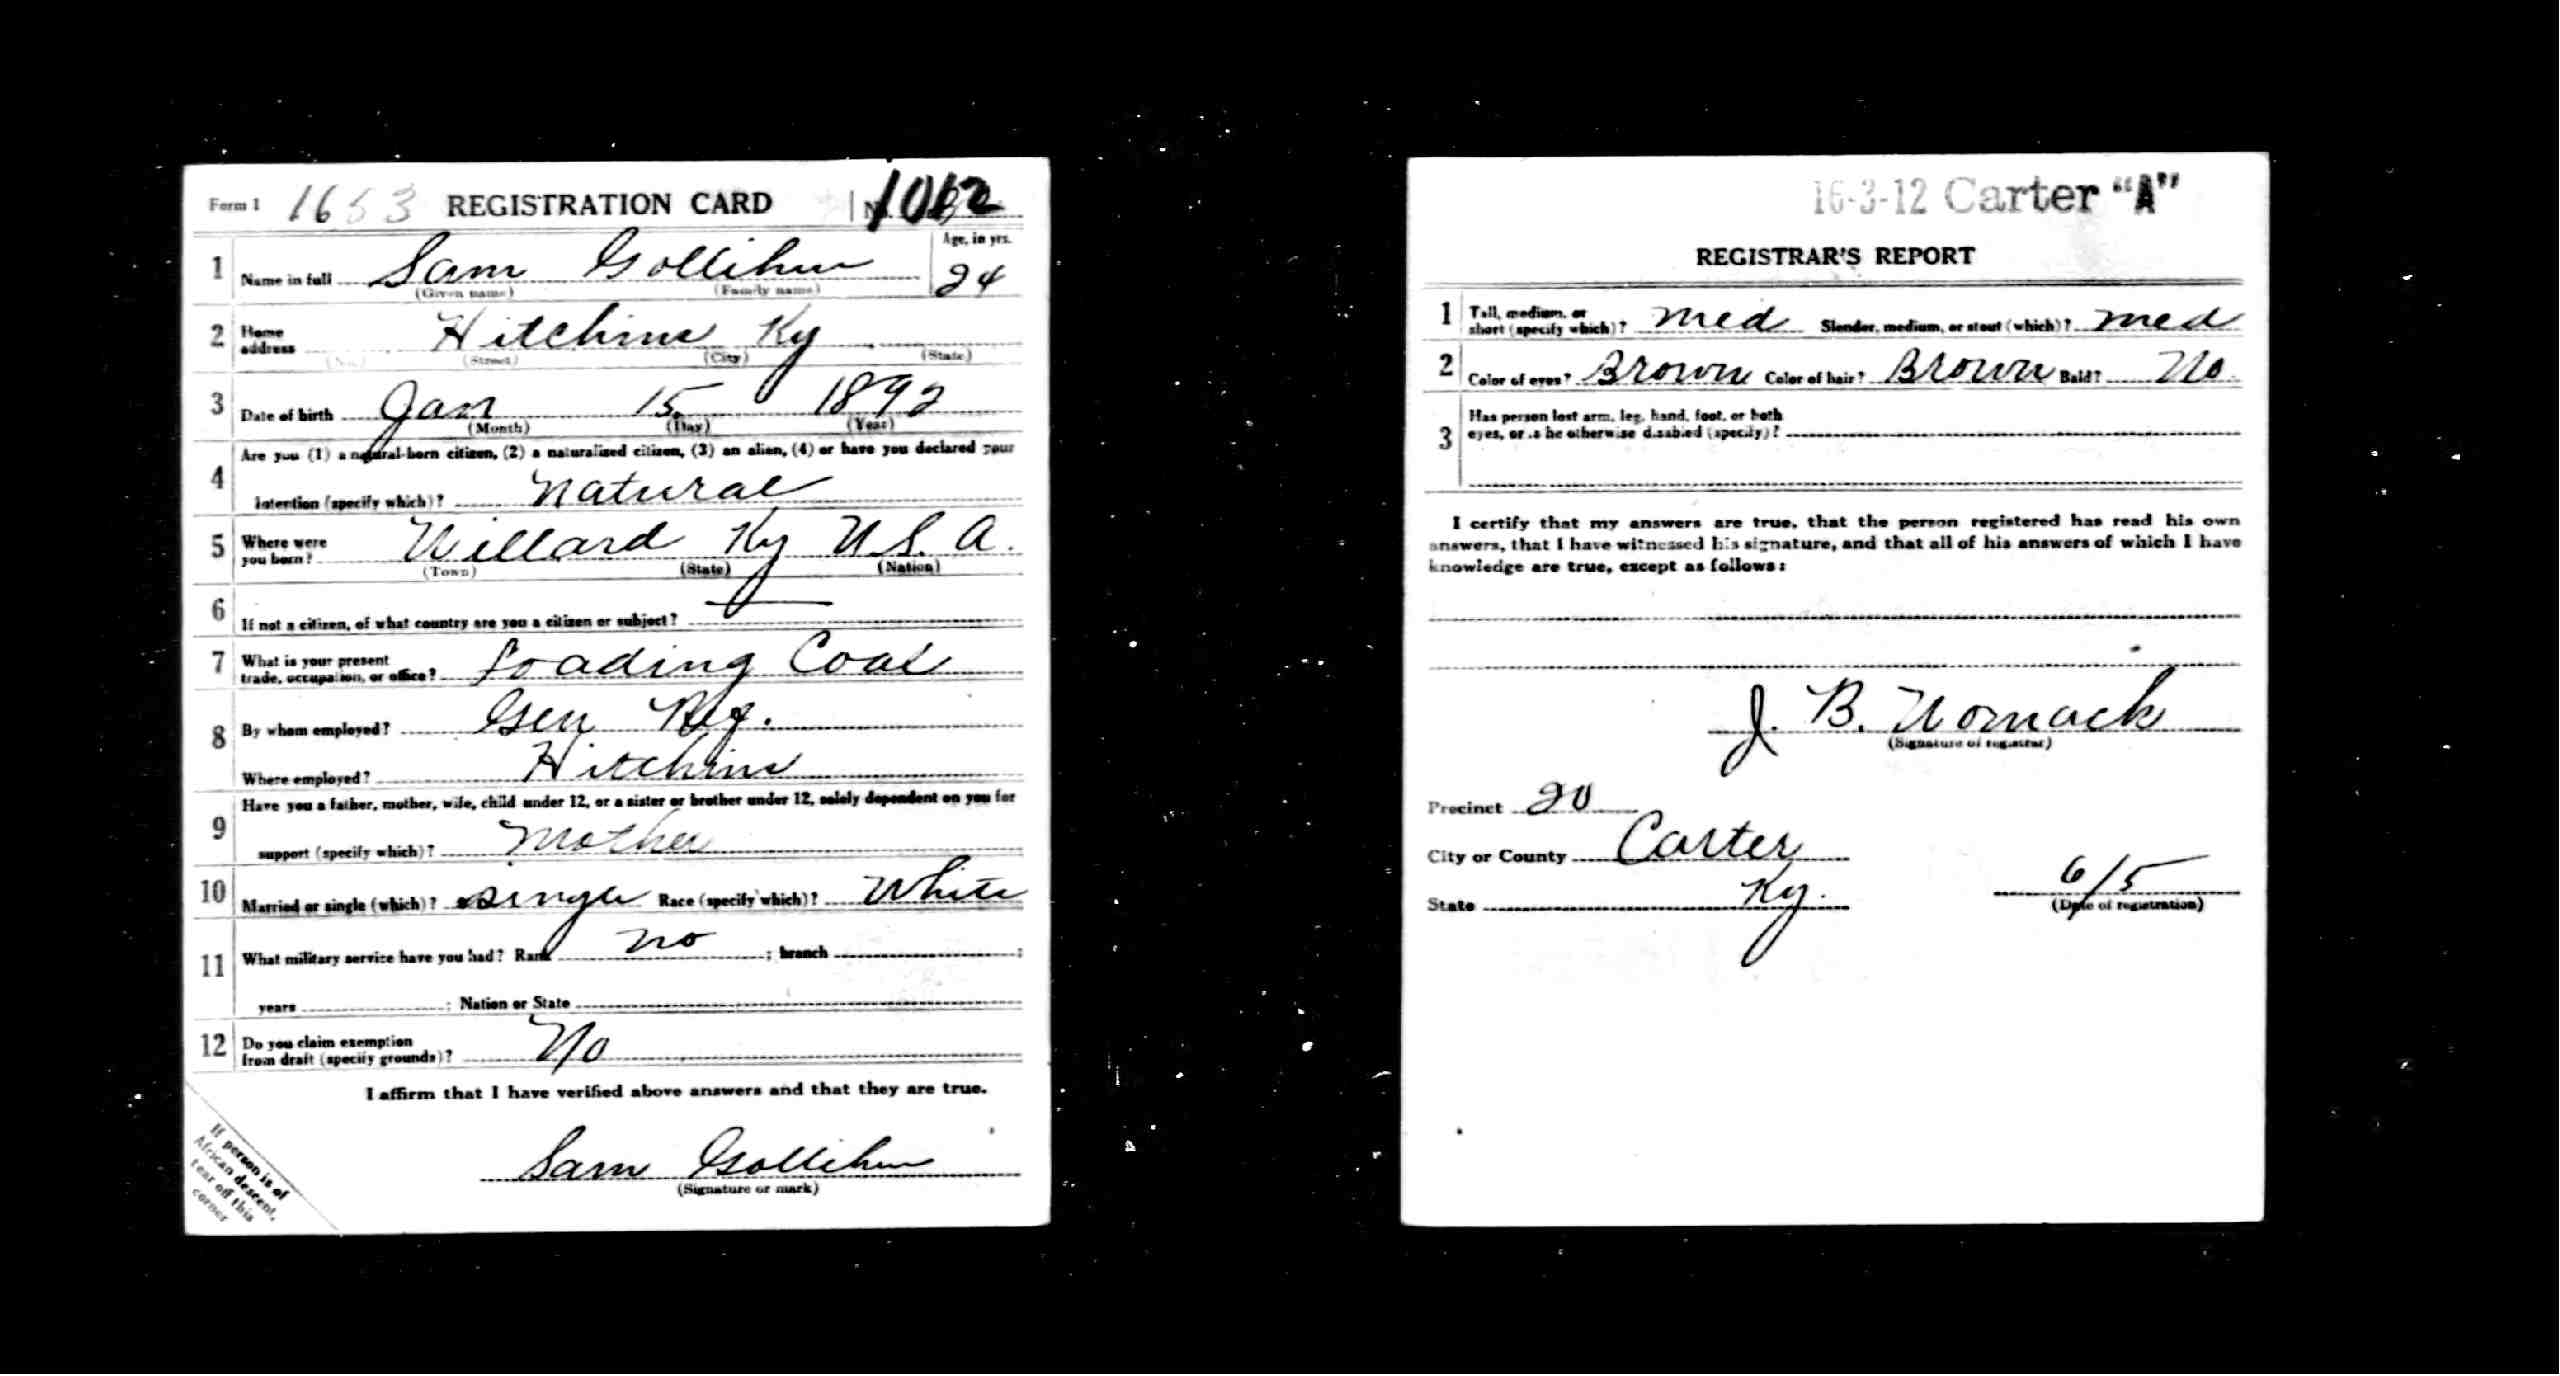 Form 1 1653 REGISTRATION CARD
Age, in yrs.
1 Name in full Sam Gollihue 24
(Given name) (Family name)
2 Home address Hitchins Ky
(No.) (Street) (City) (State)
3 Date of birth Jan 15 1892
(Month) (Day) (Year)
4 Are you (1) a natural-born citizen, (2) a naturalized citizen, (3) an alien, (4) or have you declared your
intention (specify which)? Natural
5 Where were you born? Willard Ky U.S.A.
(Town) (State) (Nation)
6 If not a citizen, of what country are you a citizen or subject?
7 What is your present trade, occupation, or office? Loading Coal
8 By whom employed? Gen Ref.
Where employed? Hitchins
9 Have you a father, mother, wife, child under 12, or a sister or brother under 12, solely dependent on you for
support (specify which)? Mother
10 Married or single (which)? Single Race (specify which)? White
11 What military service have you had? Rank no ; branch ;
years ; Nation or State
12 Do you claim exemption from draft (specify grounds)? No
I affirm that I have verified above answers and that they are true.
Sam Gollihue
(Signature or mark)
If person is of
African descent,
tear off this
corner
16-3-12 Carter "A"
REGISTRAR'S REPORT
1 Tall, medium, or short (specify which)? med Slender, medium, or stout (which)? med
2 Color of eyes? Brown Color of hair? Brown Bald? No
3 Has person lost arm, leg, hand, foot, or both
eyes, or is he otherwise disabled (specify)?
I certify that my answers are true, that the person registered has read his own
answers, that I have witnessed his signature, and that all of his answers of which I have
knowledge are true, except as follows:
J. B. Womack
(Signature of registrar)
Precinct 20
City or County Carter
State Ky. 6/5
(Date of registration)